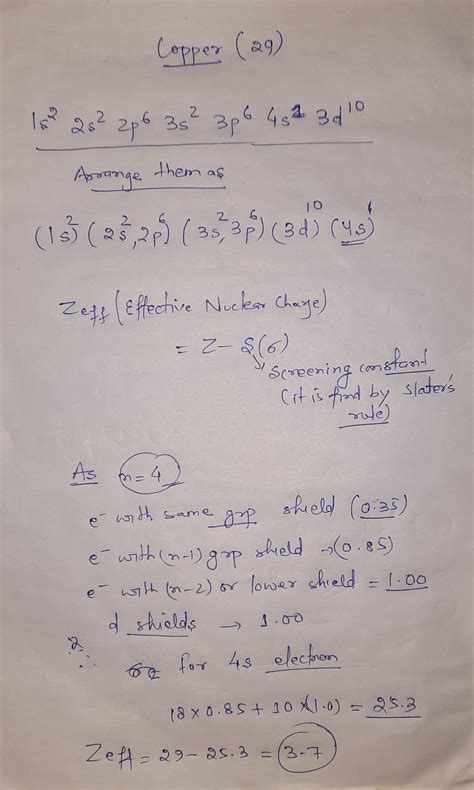 Copper (29)
1s² 2s² 2p⁶ 3s² 3p⁶ 4s¹ 3d¹⁰
Arrange them as
(1s)² (2s²,2p⁶) (3s²,3p⁶) (3d)¹⁰ (4s)¹
Zeff (Effective Nuclear Charge)
= Z – S(σ)
Screening constant
(it is find by Slater's
rule)
As n=4
e⁻ with same grp shield (0.35)
e⁻ with (n-1) grp shield → (0.85)
e⁻ with (n-2) or lower shield = 1.00
d shields → 1.00
for 4s electron
18 x 0.85 + 10 x (1.0) = 25.3
Zeff = 29 – 25.3 = 3.7